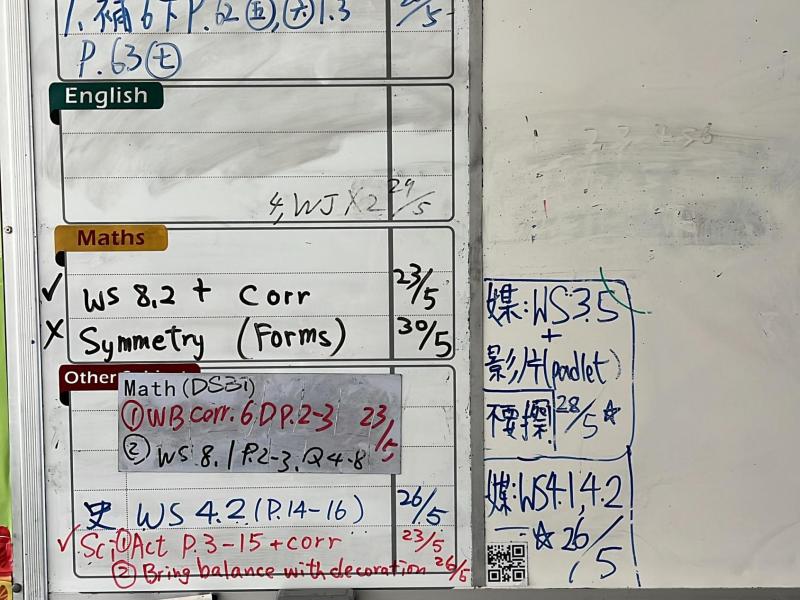 1. 補6下P.62㊄,㊅1.3
P.63㊆
English
4, WJ X2 29/5
Maths
✓ WS 8.2 + Corr 23/5
X Symmetry (Forms) 30/5
Other
Math (DSBi)
① WB Corr. 6D P.2-3 23/5
② WS 8.1 P.2-3, Q4-8
史 WS 4.2 (P.14-16) 26/5
✓ Sci ① Act P.3-15 + corr 23/5
② Bring balance with decoration 26/5
媒:WS3.5
+
影片(padlet)
不要擦 28/5 ☆
媒:WS4.1,4.2
— ☆ 26/5